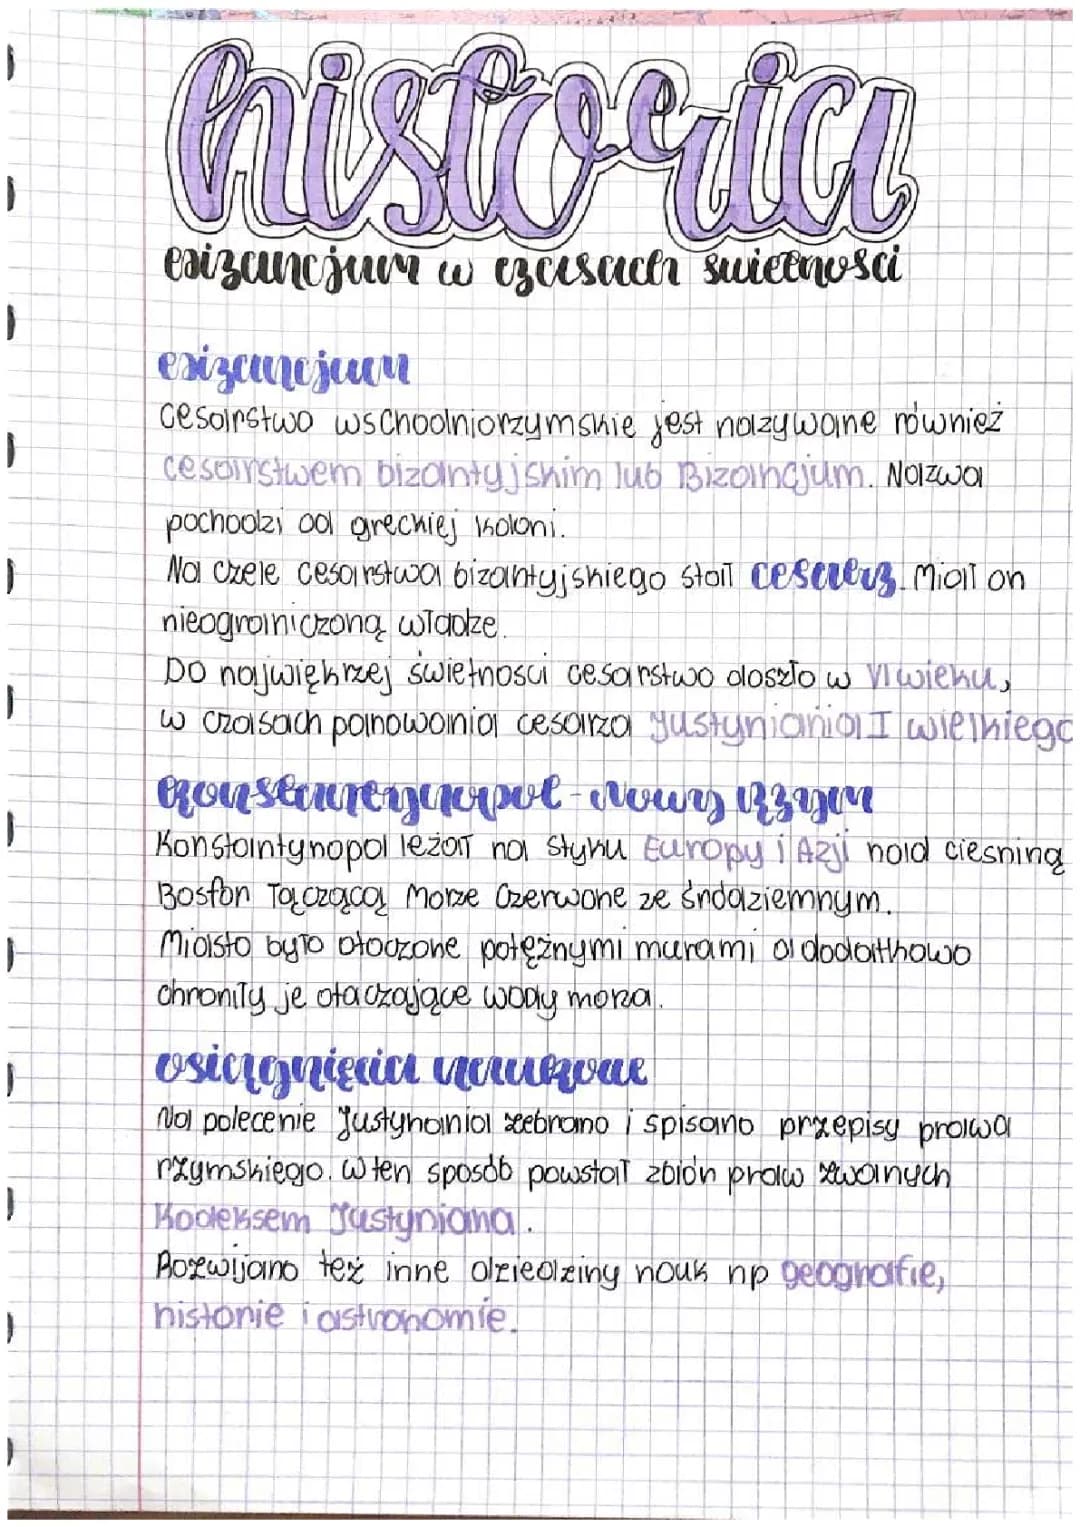 historia
bizancjum w czasach świetności
bizancjum
Cesarstwo wschodniorzymskie jest nazywane również
cesarstwem bizantyjskim lub Bizancjum. Nazwa
pochodzi od greckiej koloni.
Na czele cesarstwa bizantyjskiego stał cesarz. Miał on
nieograniczoną władze.
Do największej świetnosci cesarstwo doszło w VI wieku,
w czasach panowania cesarza Justyniania I wielkiego
konstantynopol - nowy rzym
Konstantynopol leżał na styku Europy i Azji nad ciesniną
Bosfor łączącą Morze Czerwone ze śródziemnym.
Miasto było otoczone potężnymi murami a dodatkowo
chroniły je otaczające wody morza.
osiągnięcia naukowe
Na polecenie Justyniania zebrano i spisano przepisy prawa
rzymskiego. W ten sposób powstał zbiór praw zwanych
Kodeksem Justyniana.
Rozwijano też inne dziedziny nauk np geografie,
historie i astronomie.